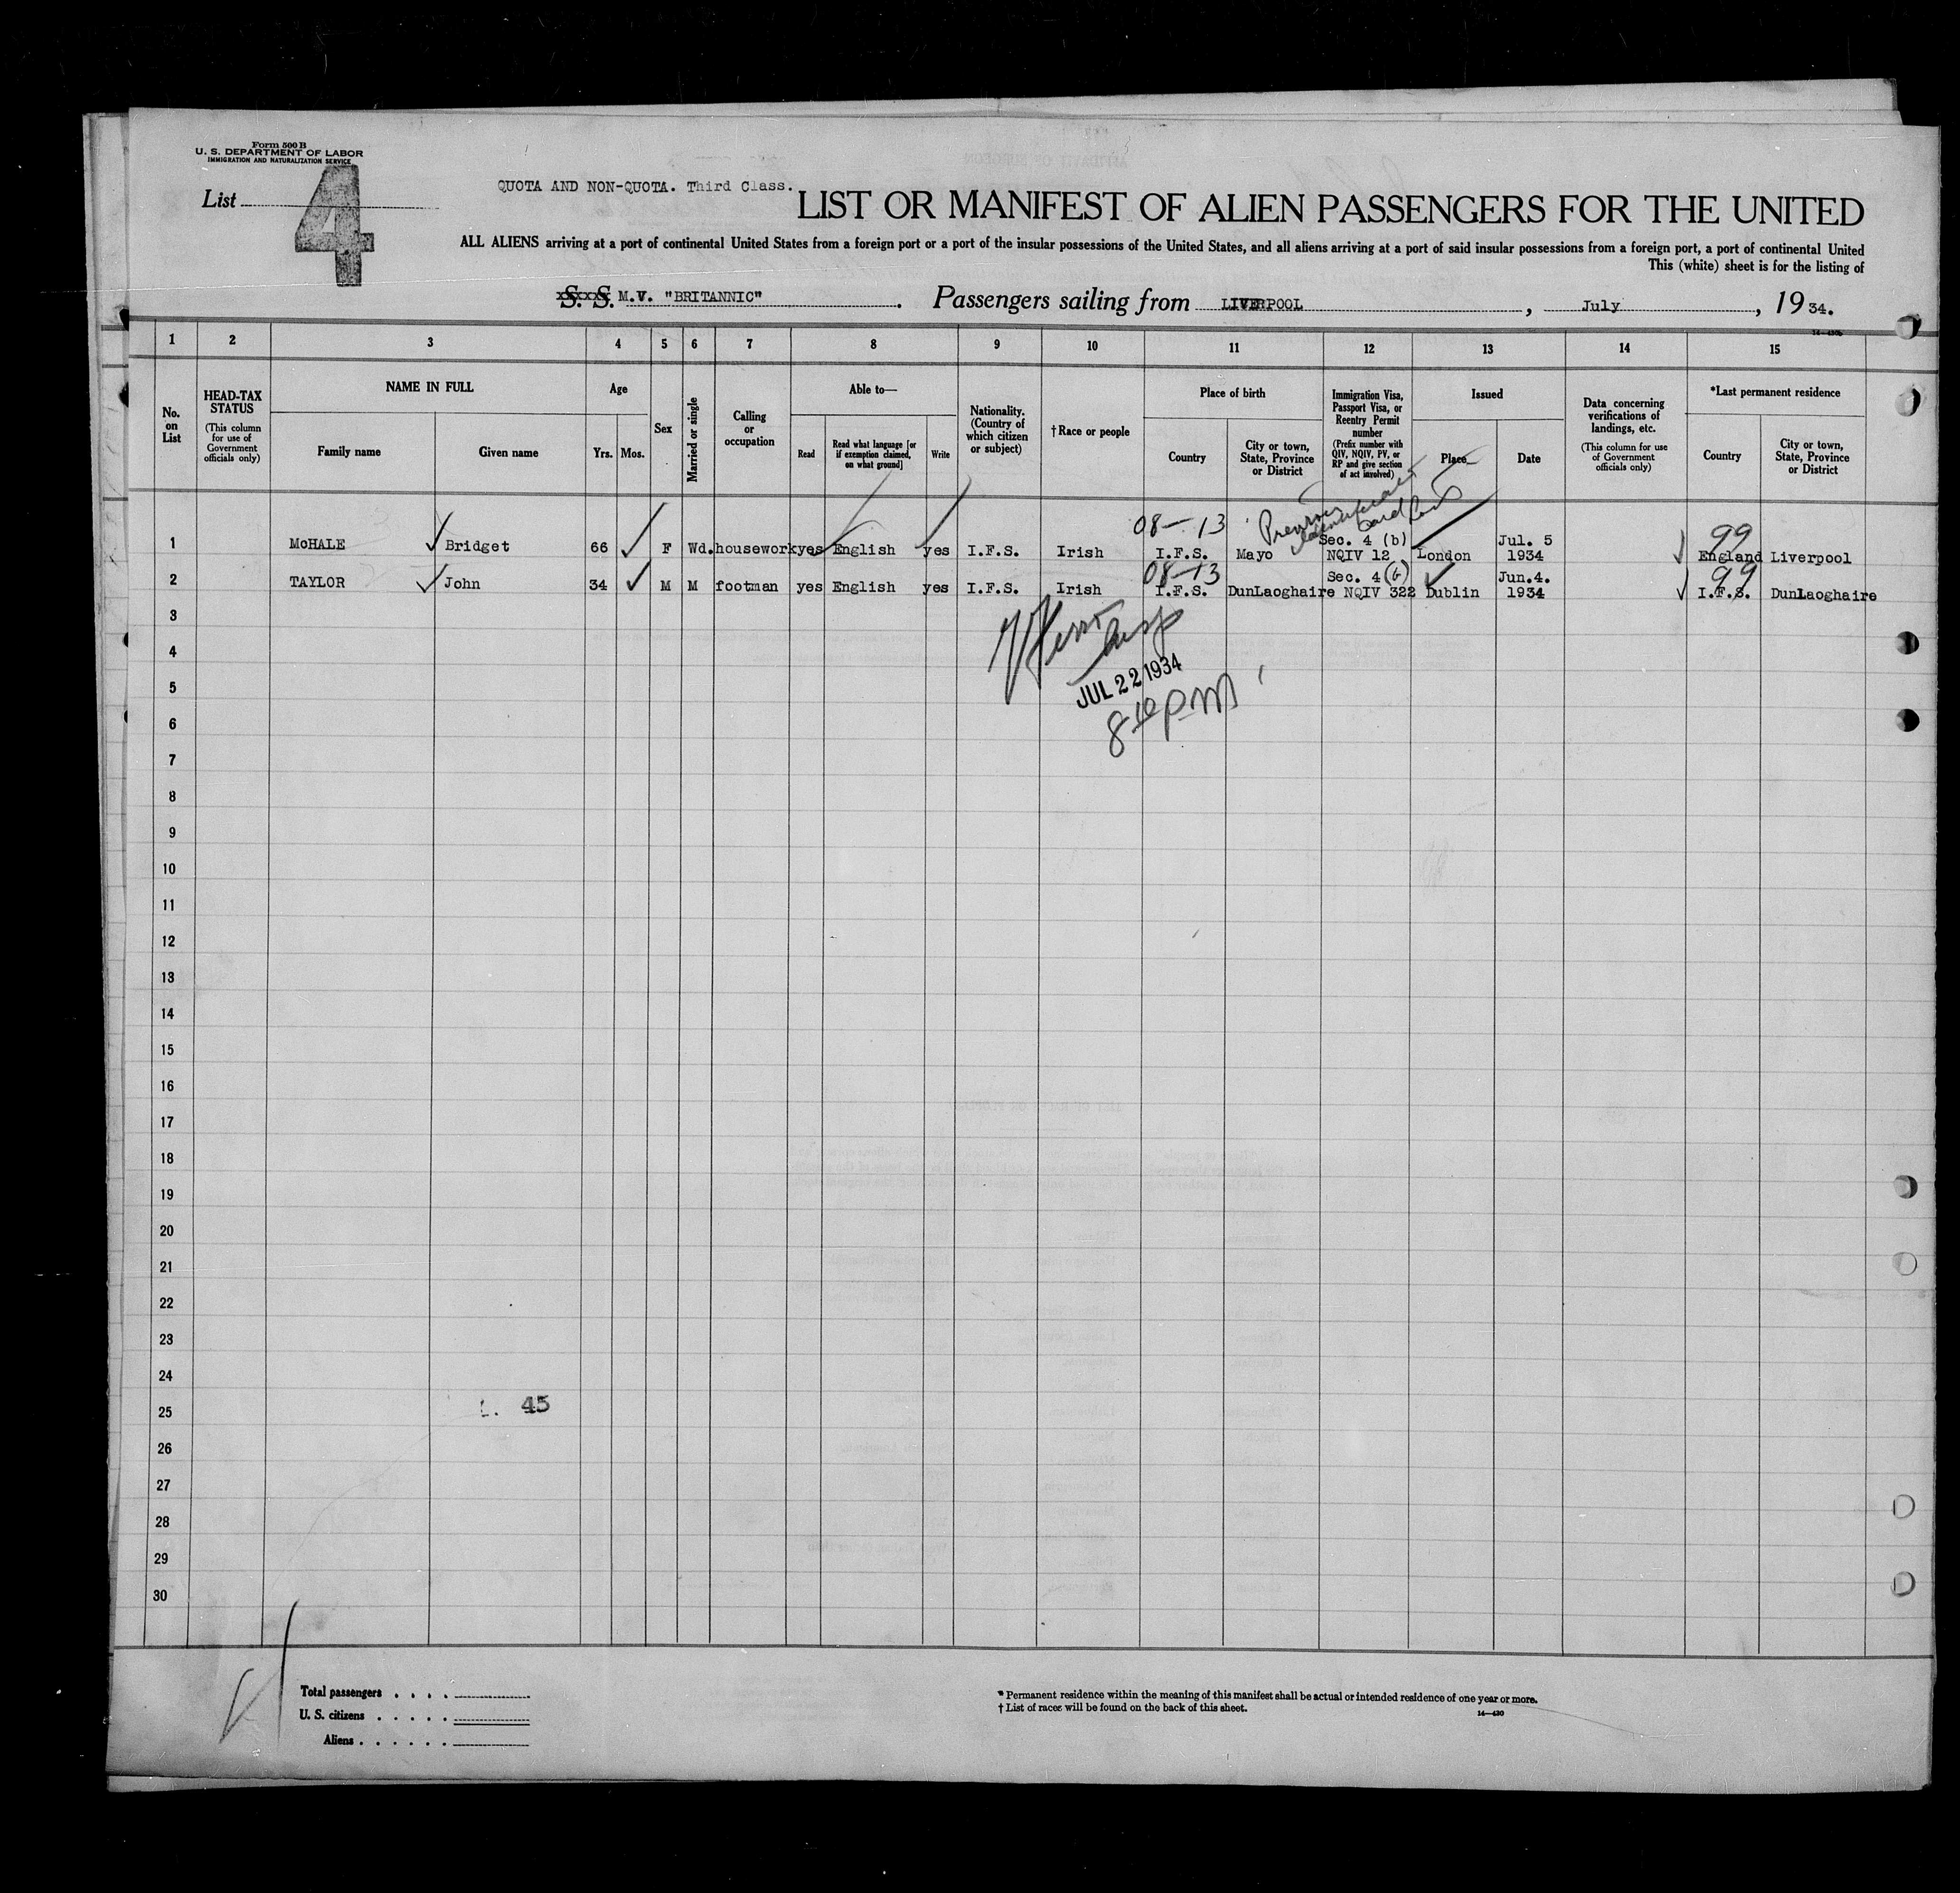 Form 500 B
U. S. DEPARTMENT OF LABOR
IMMIGRATION AND NATURALIZATION SERVICE
List 4
QUOTA AND NON-QUOTA. Third Class.
LIST OR MANIFEST OF ALIEN PASSENGERS FOR THE UNITED
ALL ALIENS arriving at a port of continental United States from a foreign port or a port of the insular possessions of the United States, and all aliens arriving at a port of said insular possessions from a foreign port, a port of continental United
This (white) sheet is for the listing of
S. S. M.V. "BRITANNIC". Passengers sailing from LIVERPOOL, July, 19 34.
1 2 3 4 5 6 7 8 9 10 11 12 13 14 15
No. on List
HEAD-TAX STATUS
(This column for use of Government officials only)
NAME IN FULL
Family name
Given name
Age
Yrs. Mos.
Sex
Married or single
Calling or occupation
Able to—
Read
Read what language [or if exemption claimed, on what ground]
Write
Nationality. (Country of which citizen or subject)
†Race or people
Place of birth
Country
City or town, State, Province or District
Immigration Visa, Passport Visa, or Reentry Permit number
(Prefix number with QIV, NQIV, PV, or RP and give section of act involved)
Issued
Place
Date
Data concerning verifications of landings, etc.
(This column for use of Government officials only)
*Last permanent residence
Country
City or town, State, Province or District
08—13 99
1 McHALE Bridget 66 F Wd. housework yes English yes I.F.S. Irish I.F.S. Mayo Sec. 4 (b) NQIV 12 London Jul. 5 1934 England Liverpool
08—13 99
2 TAYLOR John 34 M M footman yes English yes I.F.S. Irish I.F.S. DunLaoghaire Sec. 4(b) NQIV 322 Dublin Jun.4. 1934 I.F.S. DunLaoghaire
3
4
5
JUL 22 1934
6
7
8
9
10
11
12
13
14
15
16
17
18
19
20
21
22
23
24
25
45
26
27
28
29
30
Total passengers
U. S. citizens
Aliens
* Permanent residence within the meaning of this manifest shall be actual or intended residence of one year or more.
† List of races will be found on the back of this sheet.
14—430